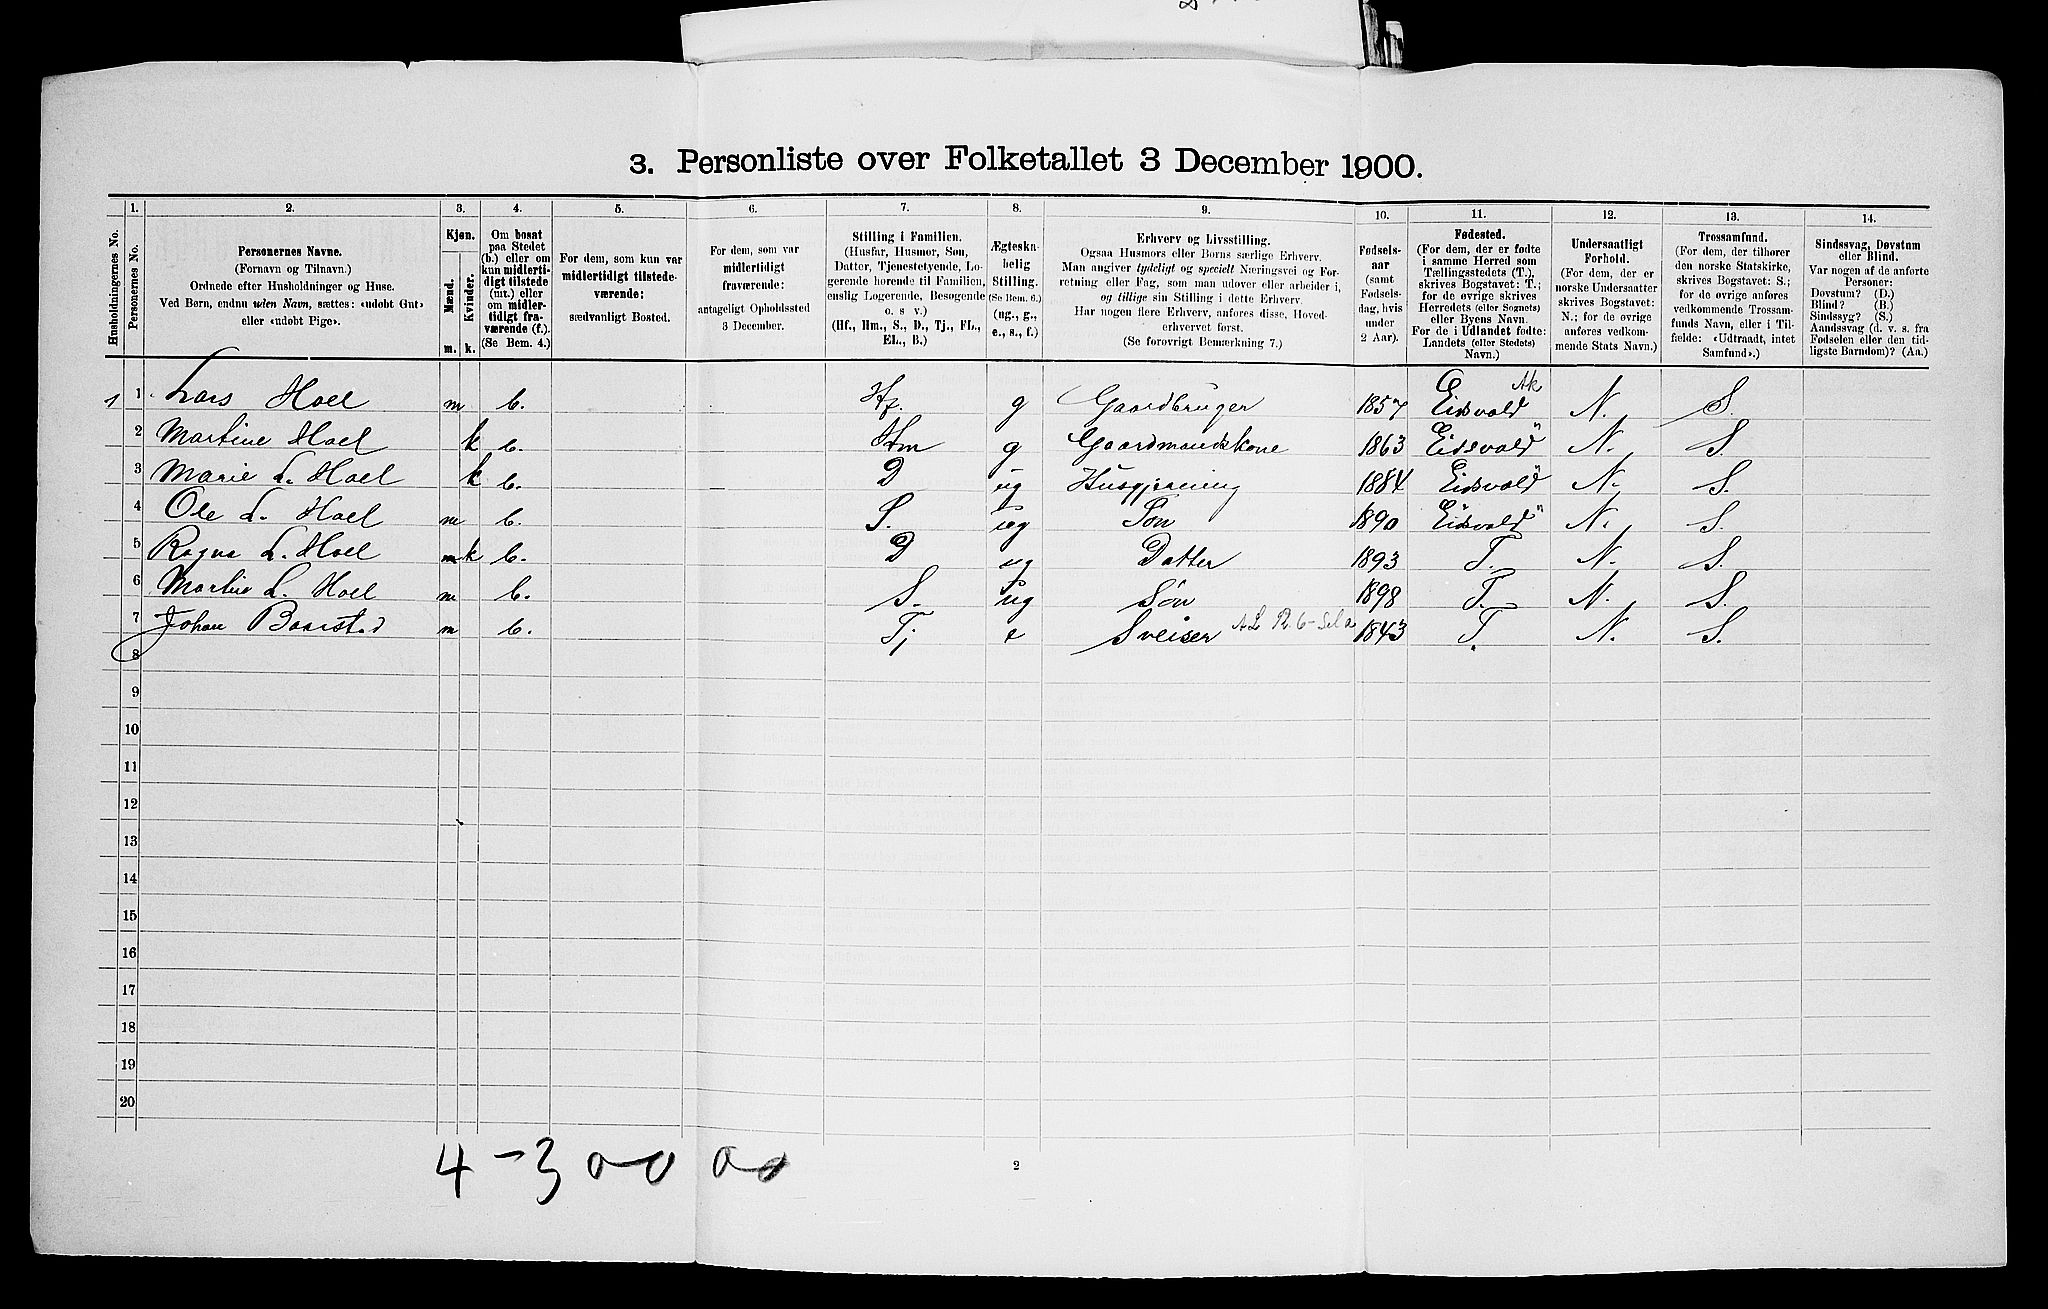 3. Personliste over Folketallet 3 December 1900.
1. 2. 3. 4. 5. 6. 7. 8. 9. 10. 11. 12. 13. 14.
Husholdningernes No.
Personernes No.
Personernes Navne.
(Fornavn og Tilnavn.)
Ordnede efter Husholdninger og Huse.
Ved Børn, endnu uden Navn, sættes: «udøbt Gut»
eller «udøbt Pige».
Kjøn.
Mænd.
Kvinder.
m. k.
Om bosat
paa Stedet
(b.) eller om
kun midlerti-
digt tilstede
(mt.) eller
om midler-
tidigt fra-
værende (f.).
(Se Bem. 4.)
For dem, som kun var
midlertidigt tilstede-
værende:
sædvanligt Bosted.
For dem, som var
midlertidigt
fraværende:
antageligt Opholdssted
3 December.
Stilling i Familien.
(Husfar, Husmor, Søn,
Datter, Tjenestetyende, Lo-
gerende hørende til Familien,
enslig Logerende, Besøgende
o. s. v.)
(Hf., Hm., S., D., Tj., FL.,
EL., B.)
Ægteska-
belig
Stilling.
(Se Bem. 6.)
(ug., g.,
e., s., f.)
Erhverv og Livsstilling.
Ogsaa Husmors eller Børns særlige Erhverv.
Man angiver tydeligt og specielt Næringsvei og For-
retning eller Fag, som man udøver eller arbeider i,
og tillige sin Stilling i dette Erhverv.
Har nogen flere Erhverv, anføres disse, Hoved-
erhvervet først.
(Se forøvrigt Bemærkning 7.)
Fødsels-
aar
(samt
Fødsels-
dag, hvis
under
2 Aar).
Fødested.
(For dem, der er fødte
i samme Herred som
Tællingsstedets (T.),
skrives Bogstavet: T.;
for de øvrige skrives
Herredets (eller Sognets)
eller Byens Navn.
For de i Udlandet fødte:
Landets (eller Stedets)
Navn.)
Undersaatligt
Forhold.
(For dem, der er
norske Undersaatter
skrives Bogstavet:
N.; for de øvrige
anføres vedkom-
mende Stats Navn.)
Trossamfund.
(For dem, der tilhører
den norske Statskirke,
skrives Bogstavet: S.;
for de øvrige anføres
vedkommende Trossam-
funds Navn, eller i Til-
fælde: «Udtraadt, intet
Samfund».)
Sindssvag, Døvstum
eller Blind.
Var nogen af de anførte
Personer:
Døvstum? (D.)
Blind? (B.)
Sindssyg? (S.)
Aandssvag (d. v. s. fra
Fødselen eller den tid-
ligste Barndom)? (Aa.)
1 1 Lars Hoel m b. Hf. g Gaardbruger 1857 Eidsvold Ak N. S.
2 Martine Hoel k b. Hm g Gaardmandskone 1863 Eidsvold " N. S.
3 Marie L. Hoel k b. D ug Husgjerning 1884 Eidsvold " N. S.
4 Ole L. Hoel m b. S. ug Søn 1890 Eidsvold " N. S.
5 Ragna L. Hoel k b. D ug Datter 1893 T. N. S.
6 Martin L. Hoel m b. S. ug Søn 1898 T. N. S.
7 Johan Baarstad m b. Tj e Sveiser 1843 T N. S.
8
9
10
11
12
13
14
15
16
17
18
19
20
4 - 3 0 0 0 0
2